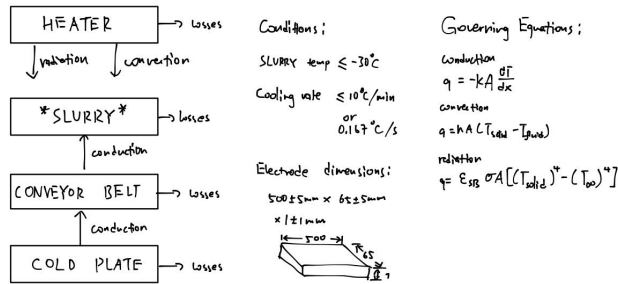 HEATER
→ Losses
radiation
convection
*SLURRY*
→ Losses
conduction
CONVEYOR BELT
→ Losses
conduction
COLD PLATE
→ Losses
Conditions:
SLURRY temp ≤ -30°C
Cooling rate ≤ 10°C/min
or
0.167°C/s
Electrode dimensions:
500±5mm × 65±5mm
×1±1mm
500
65
Governing Equations:
conduction
q = -kA dT/dx
convection
q = hA(Tsolid - Tfluid)
radiation
q = εSB σA[(Tsolid)⁴ - (T∞)⁴]